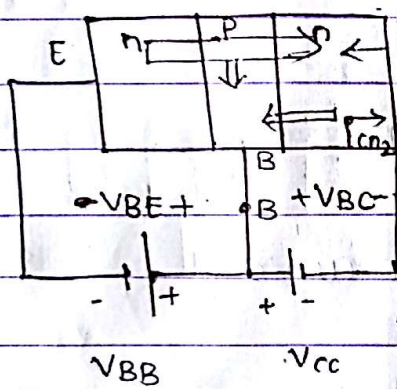 E n P n
Icn2
B
- VBE + B + VBC -
- + + -
VBB VCC